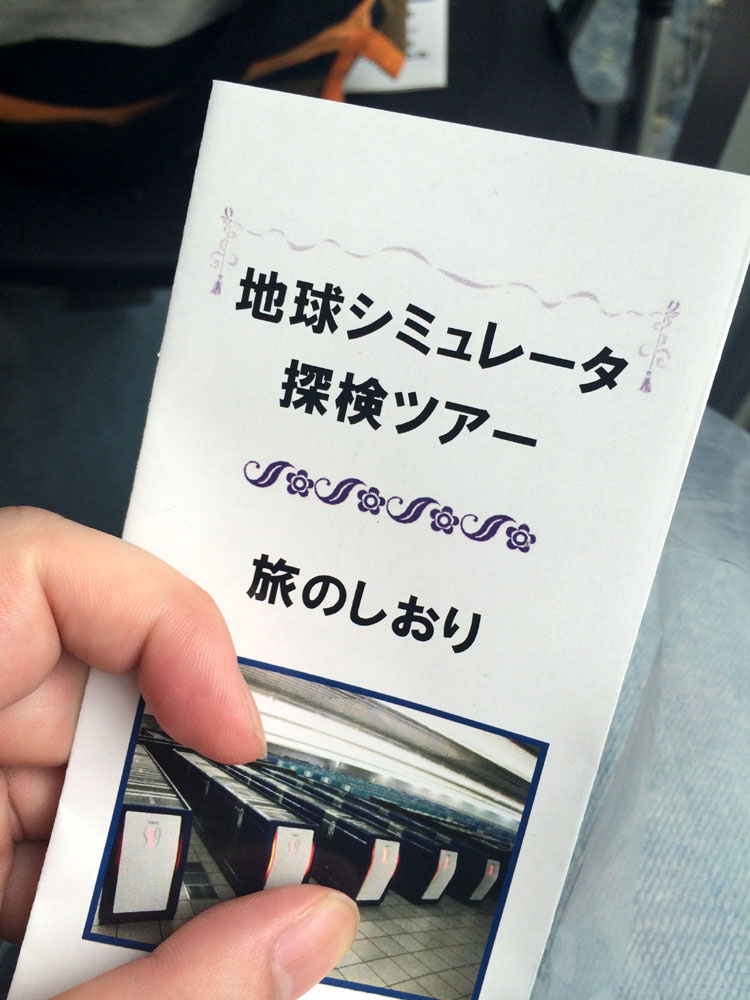 地球シミュレータ
探検ツアー
旅のしおり